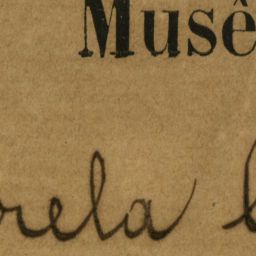 Musê
rela